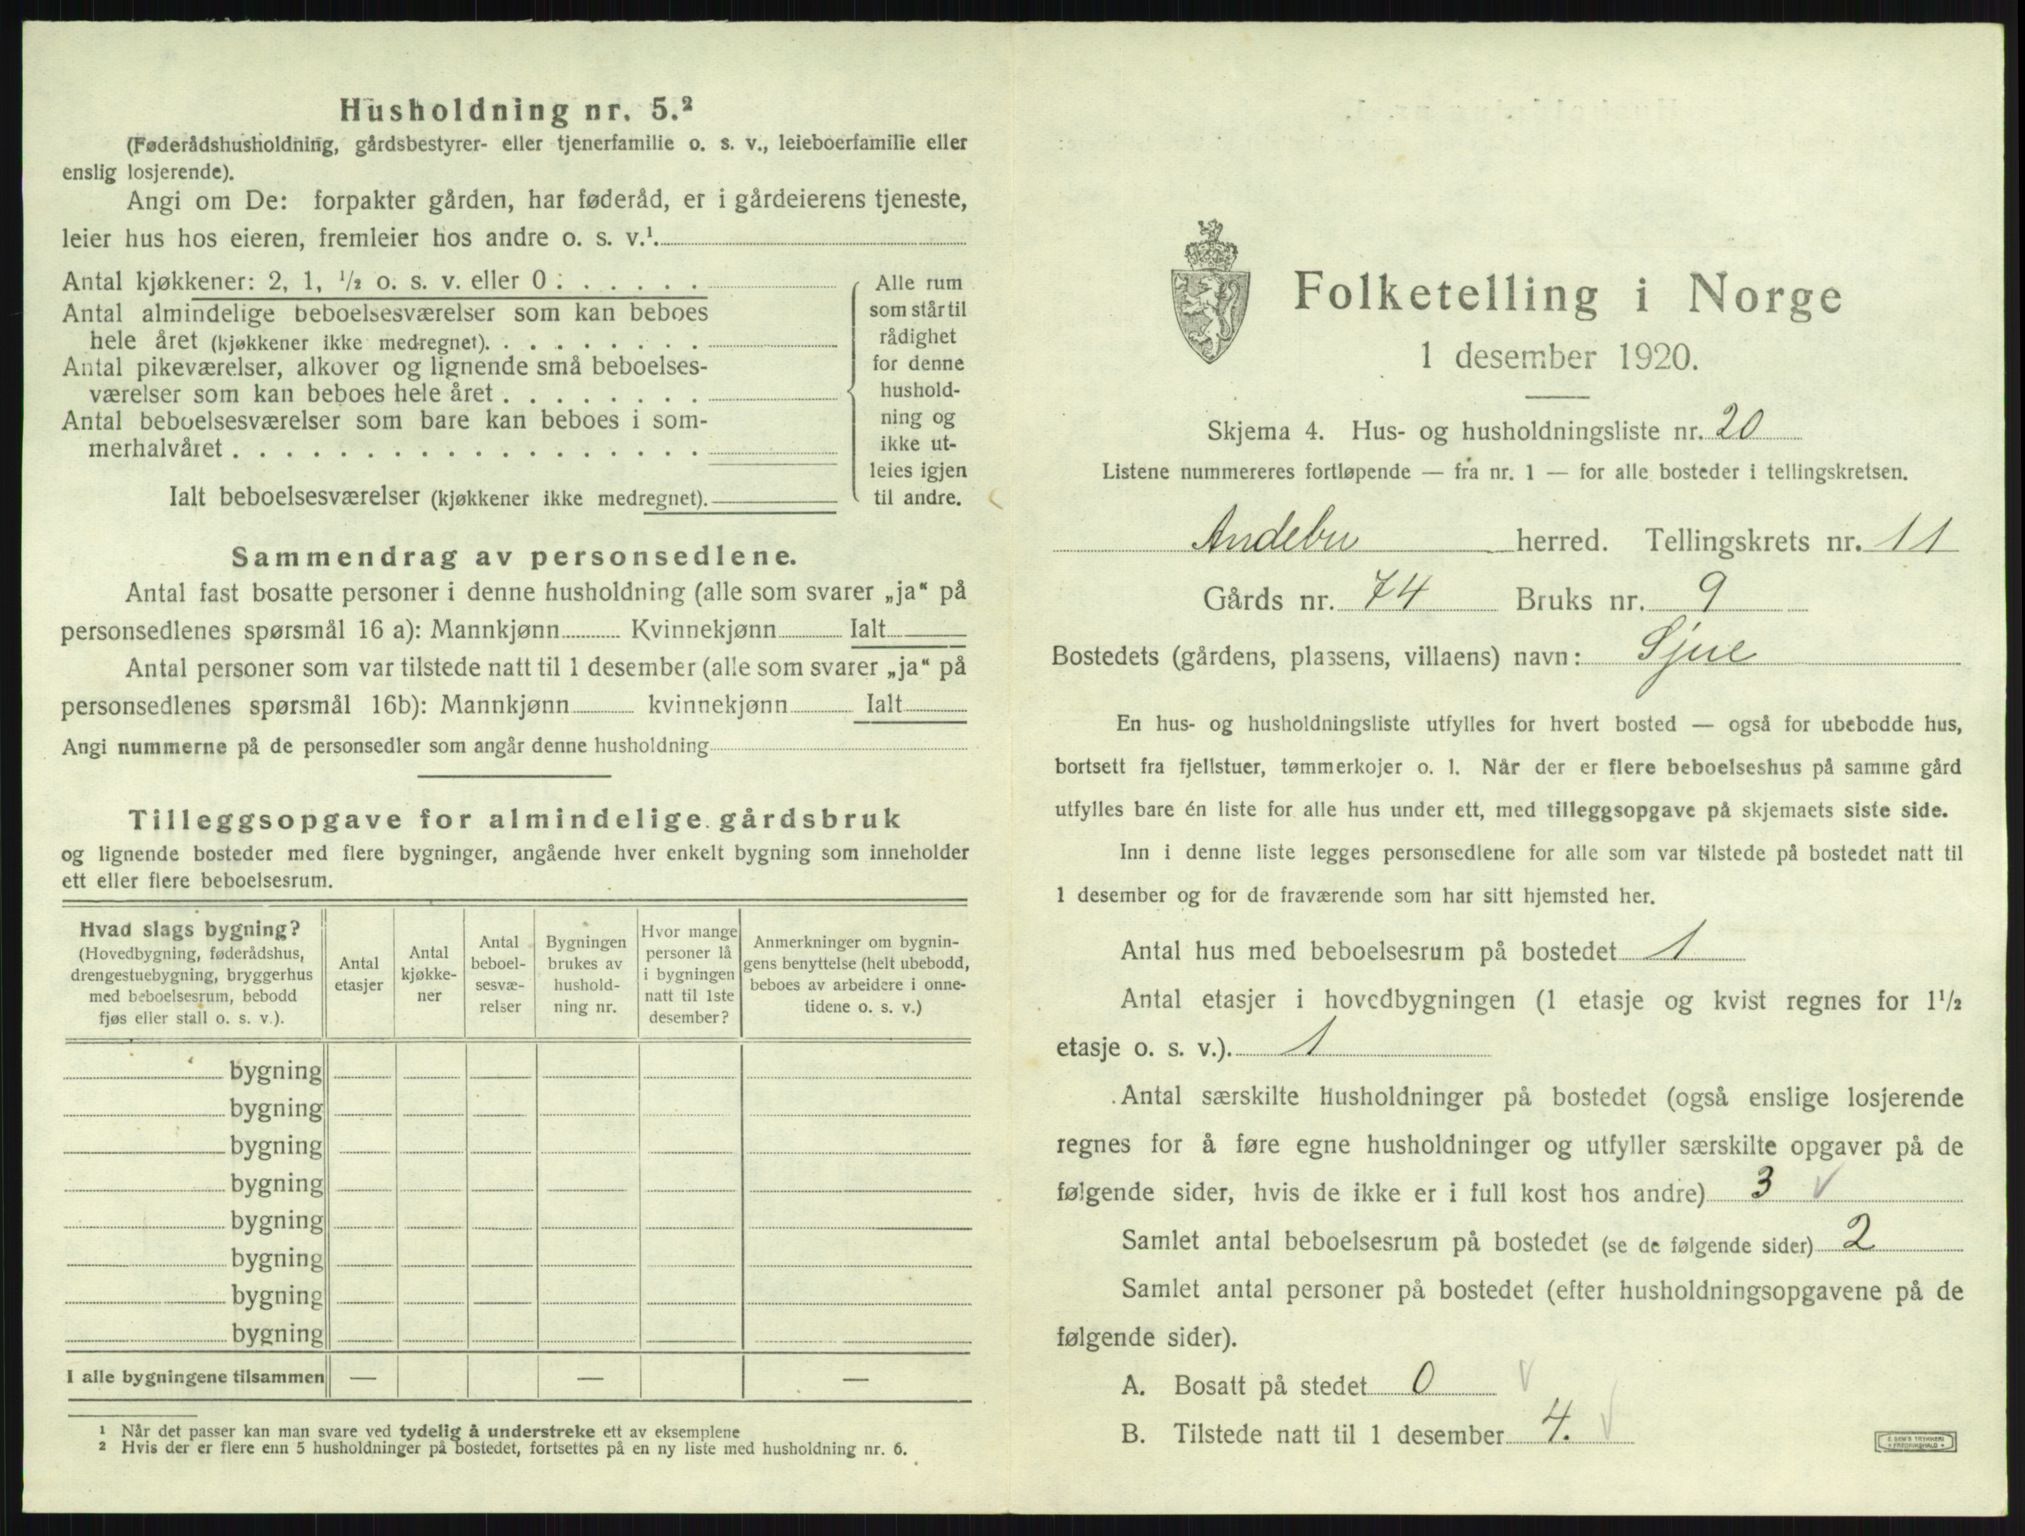 Husholdning nr. 5.²
(Føderådshusholdning, gårdsbestyrer- eller tjenerfamilie o. s. v., leieboerfamilie eller
enslig losjerende).
Angi om De: forpakter gården, har føderåd, er i gårdeierens tjeneste,
leier hus hos eieren, fremleier hos andre o. s. v.¹
Antal kjøkkener: 2, 1, ½ o. s. v. eller 0 : . . . . . .
Antal almindelige beboelsesværelser som kan beboes
hele året (kjøkkener ikke medregnet). . . . . . . . .
Antal pikeværelser, alkover og lignende små beboelses-
værelser som kan beboes hele året . . . . . . . .
Antal beboelsesværelser som bare kan beboes i som-
merhalvåret . . . . . . . . . . . . . . . . . .
Ialt beboelsesværelser (kjøkkener ikke medregnet).
Alle rum
som står til
rådighet
for denne
hushold-
ning og
ikke ut-
leies igjen
til andre.
Sammendrag av personsedlene.
Antal fast bosatte personer i denne husholdning (alle som svarer „ja“ på
personsedlenes spørsmål 16 a): Mannkjønn Kvinnekjønn Ialt
Antal personer som var tilstede natt til 1 desember (alle som svarer „ja“ på
personsedlenes spørsmål 16b): Mannkjønn kvinnekjønn Ialt
Angi nummerne på de personsedler som angår denne husholdning
Tilleggsopgave for almindelige gårdsbruk
og lignende bosteder med flere bygninger, angående hver enkelt bygning som inneholder
ett eller flere beboelsesrum.
Hvad slags bygning?
(Hovedbygning, føderådshus,
drengestuebygning, bryggerhus
med beboelsesrum, bebodd
fjøs eller stall o. s. v.).
Antal
etasjer
Antal
kjøkke-
ner
Antal
beboel-
sesvæ-
relser
Bygningen
brukes av
hushold-
ning nr.
Hvor mange
personer lå
i bygningen
natt til 1ste
desember?
Anmerkninger om bygnin-
gens benyttelse (helt ubebodd,
beboes av arbeidere i onne-
tidene o. s. v.)
bygning
bygning
bygning
bygning
bygning
bygning
bygning
bygning
I alle bygningene tilsammen — — —
¹ Når det passer kan man svare ved tydelig å understreke ett av eksemplene
² Hvis der er flere enn 5 husholdninger på bostedet, fortsettes på en ny liste med husholdning nr. 6.
Folketelling i Norge
1 desember 1920.
Skjema 4. Hus- og husholdningsliste nr. 20
Listene nummereres fortløpende — fra nr. 1 — for alle bosteder i tellingskretsen.
Andebu herred. Tellingskrets nr. 11
Gårds nr. 74 Bruks nr. 9
Bostedets (gårdens, plassens, villaens) navn: Sjue
En hus- og husholdningsliste utfylles for hvert bosted — også for ubebodde hus,
bortsett fra fjellstuer, tømmerkojer o. l. Når der er flere beboelseshus på samme gård
utfylles bare én liste for alle hus under ett, med tilleggsopgave på skjemaets siste side.
Inn i denne liste legges personsedlene for alle som var tilstede på bostedet natt til
1 desember og for de fraværende som har sitt hjemsted her.
Antal hus med beboelsesrum på bostedet 1
Antal etasjer i hovedbygningen (1 etasje og kvist regnes for 1½
etasje o. s. v.). 1
Antal særskilte husholdninger på bostedet (også enslige losjerende
regnes for å føre egne husholdninger og utfyller særskilte opgaver på de
følgende sider, hvis de ikke er i full kost hos andre) 3 √
Samlet antal beboelsesrum på bostedet (se de følgende sider) 2
Samlet antal personer på bostedet (efter husholdningsopgavene på de
følgende sider).
A. Bosatt på stedet 0 √
B. Tilstede natt til 1 desember 4. √